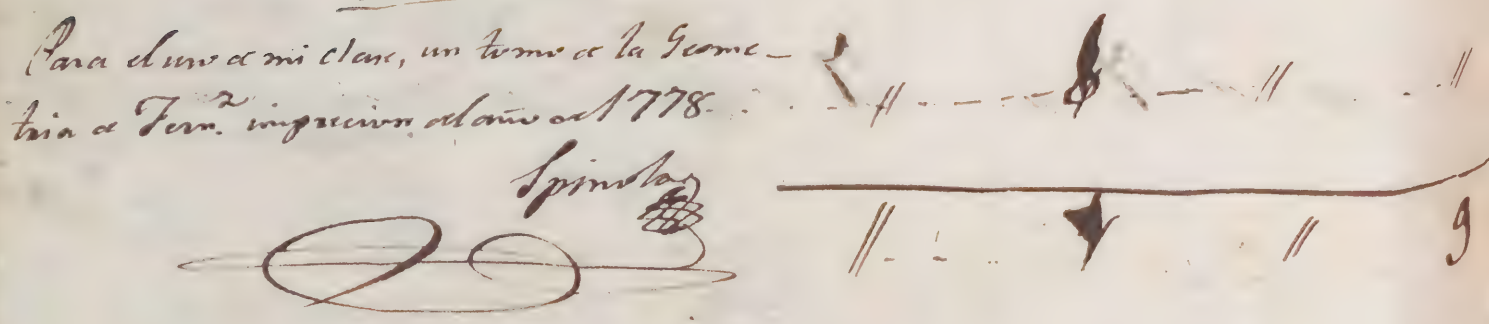 Para el uso de mi clase, un tomo de la Geome-
tria de Fern.z imprecion del año de 1778.
Spinola
9